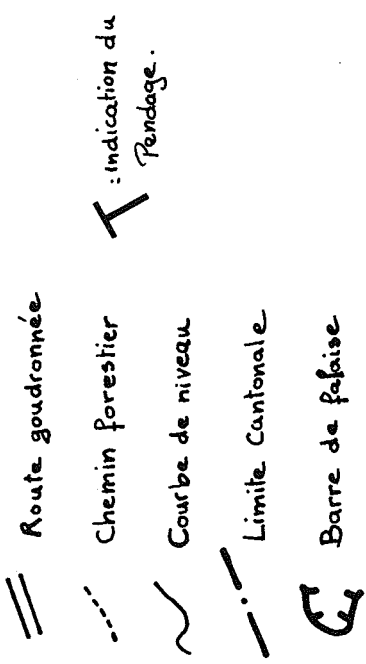 Route goudronnée
Chemin forestier
Courbe de niveau
Limite Cantonale
Barre de falaise
: Indication du
Pendage.